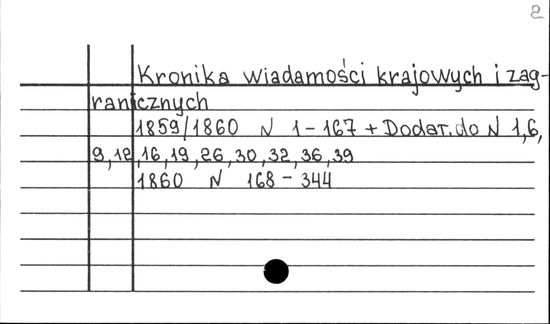 2
Kronika wiadamości krajowych i zag-
ranicznych
1859/1860 N 1-167 + Dodat. do N 1,6,
9,12,16,19,26,30,32,36,39
1860 N 168-344